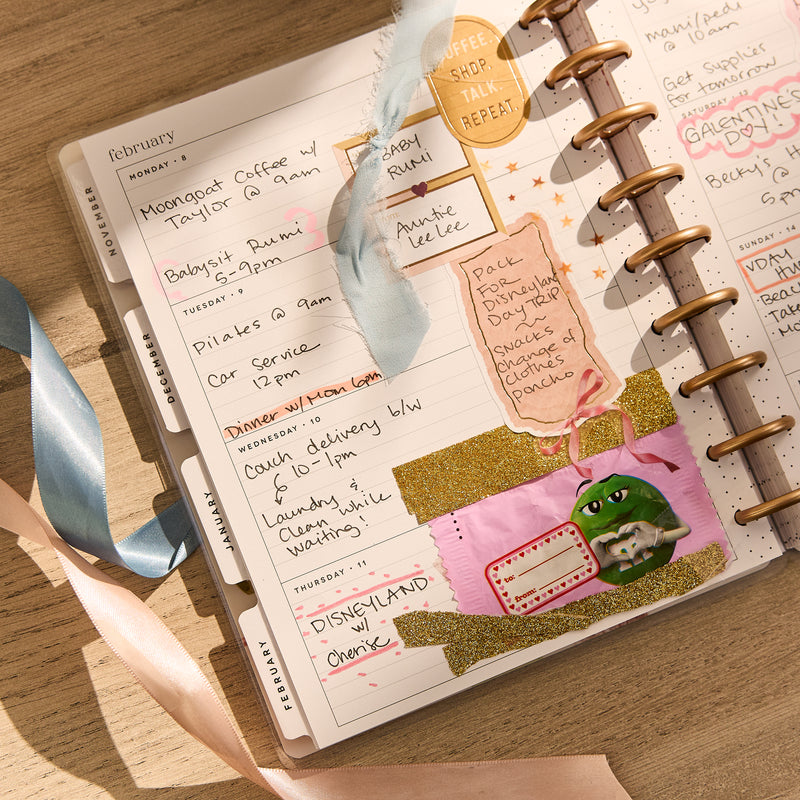 february
MONDAY • 8
Moongoat Coffee w/
Taylor @ 9am
Babysit Rumi
5-9pm
3
TUESDAY • 9
Pilates @ 9am
Car Service
12pm
Dinner w/ Mom 6pm
WEDNESDAY • 10
Couch delivery b/w
10-1pm
Laundry &
Clean while
waiting!
THURSDAY • 11
DISNEYLAND
w/
Cherise
NOVEMBER
DECEMBER
JANUARY
FEBRUARY
COFFEE.
SHOP.
TALK.
REPEAT.
BABY
RUMI
Auntie
LeeLee
PACK
FOR
Disneyland
Day TRIP
~
SNACKS
Change of
Clothes
poncho
to:
from:
mani/pedi
@ 10am
Get supplies
for tomorrow
SATURDAY • 13
GALENTINE'S
DAY!
Becky's
5pm
SUNDAY • 14
VDAY